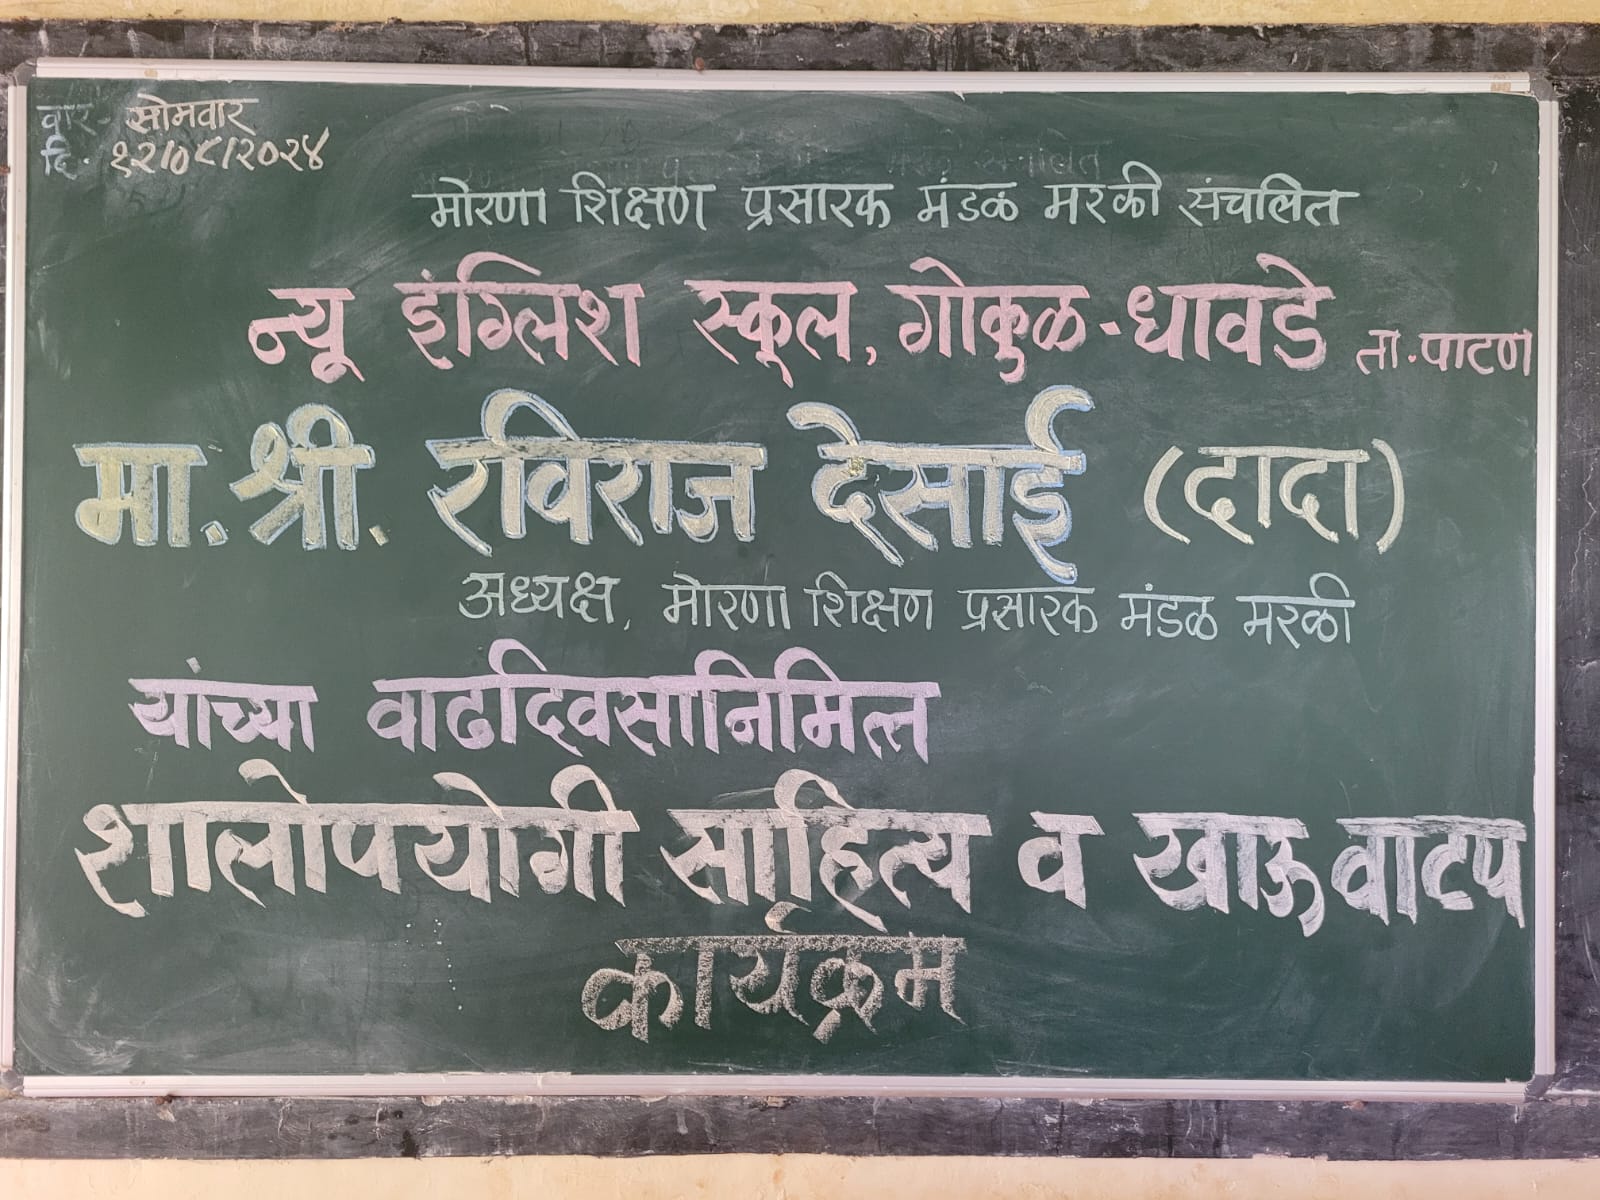 वार - सोमवार
दि. १२/०८/२०२४
मोरणा शिक्षण प्रसारक मंडळ मरळी संचलित
न्यू इंग्लिश स्कूल, गोकुळ-धावडे ता.पाटण
मा. श्री. रविराज देसाई (दादा)
अध्यक्ष, मोरणा शिक्षण प्रसारक मंडळ मरळी
यांच्या वाढदिवसानिमित्त
शालोपयोगी साहित्य व खाऊ वाटप
कार्यक्रम